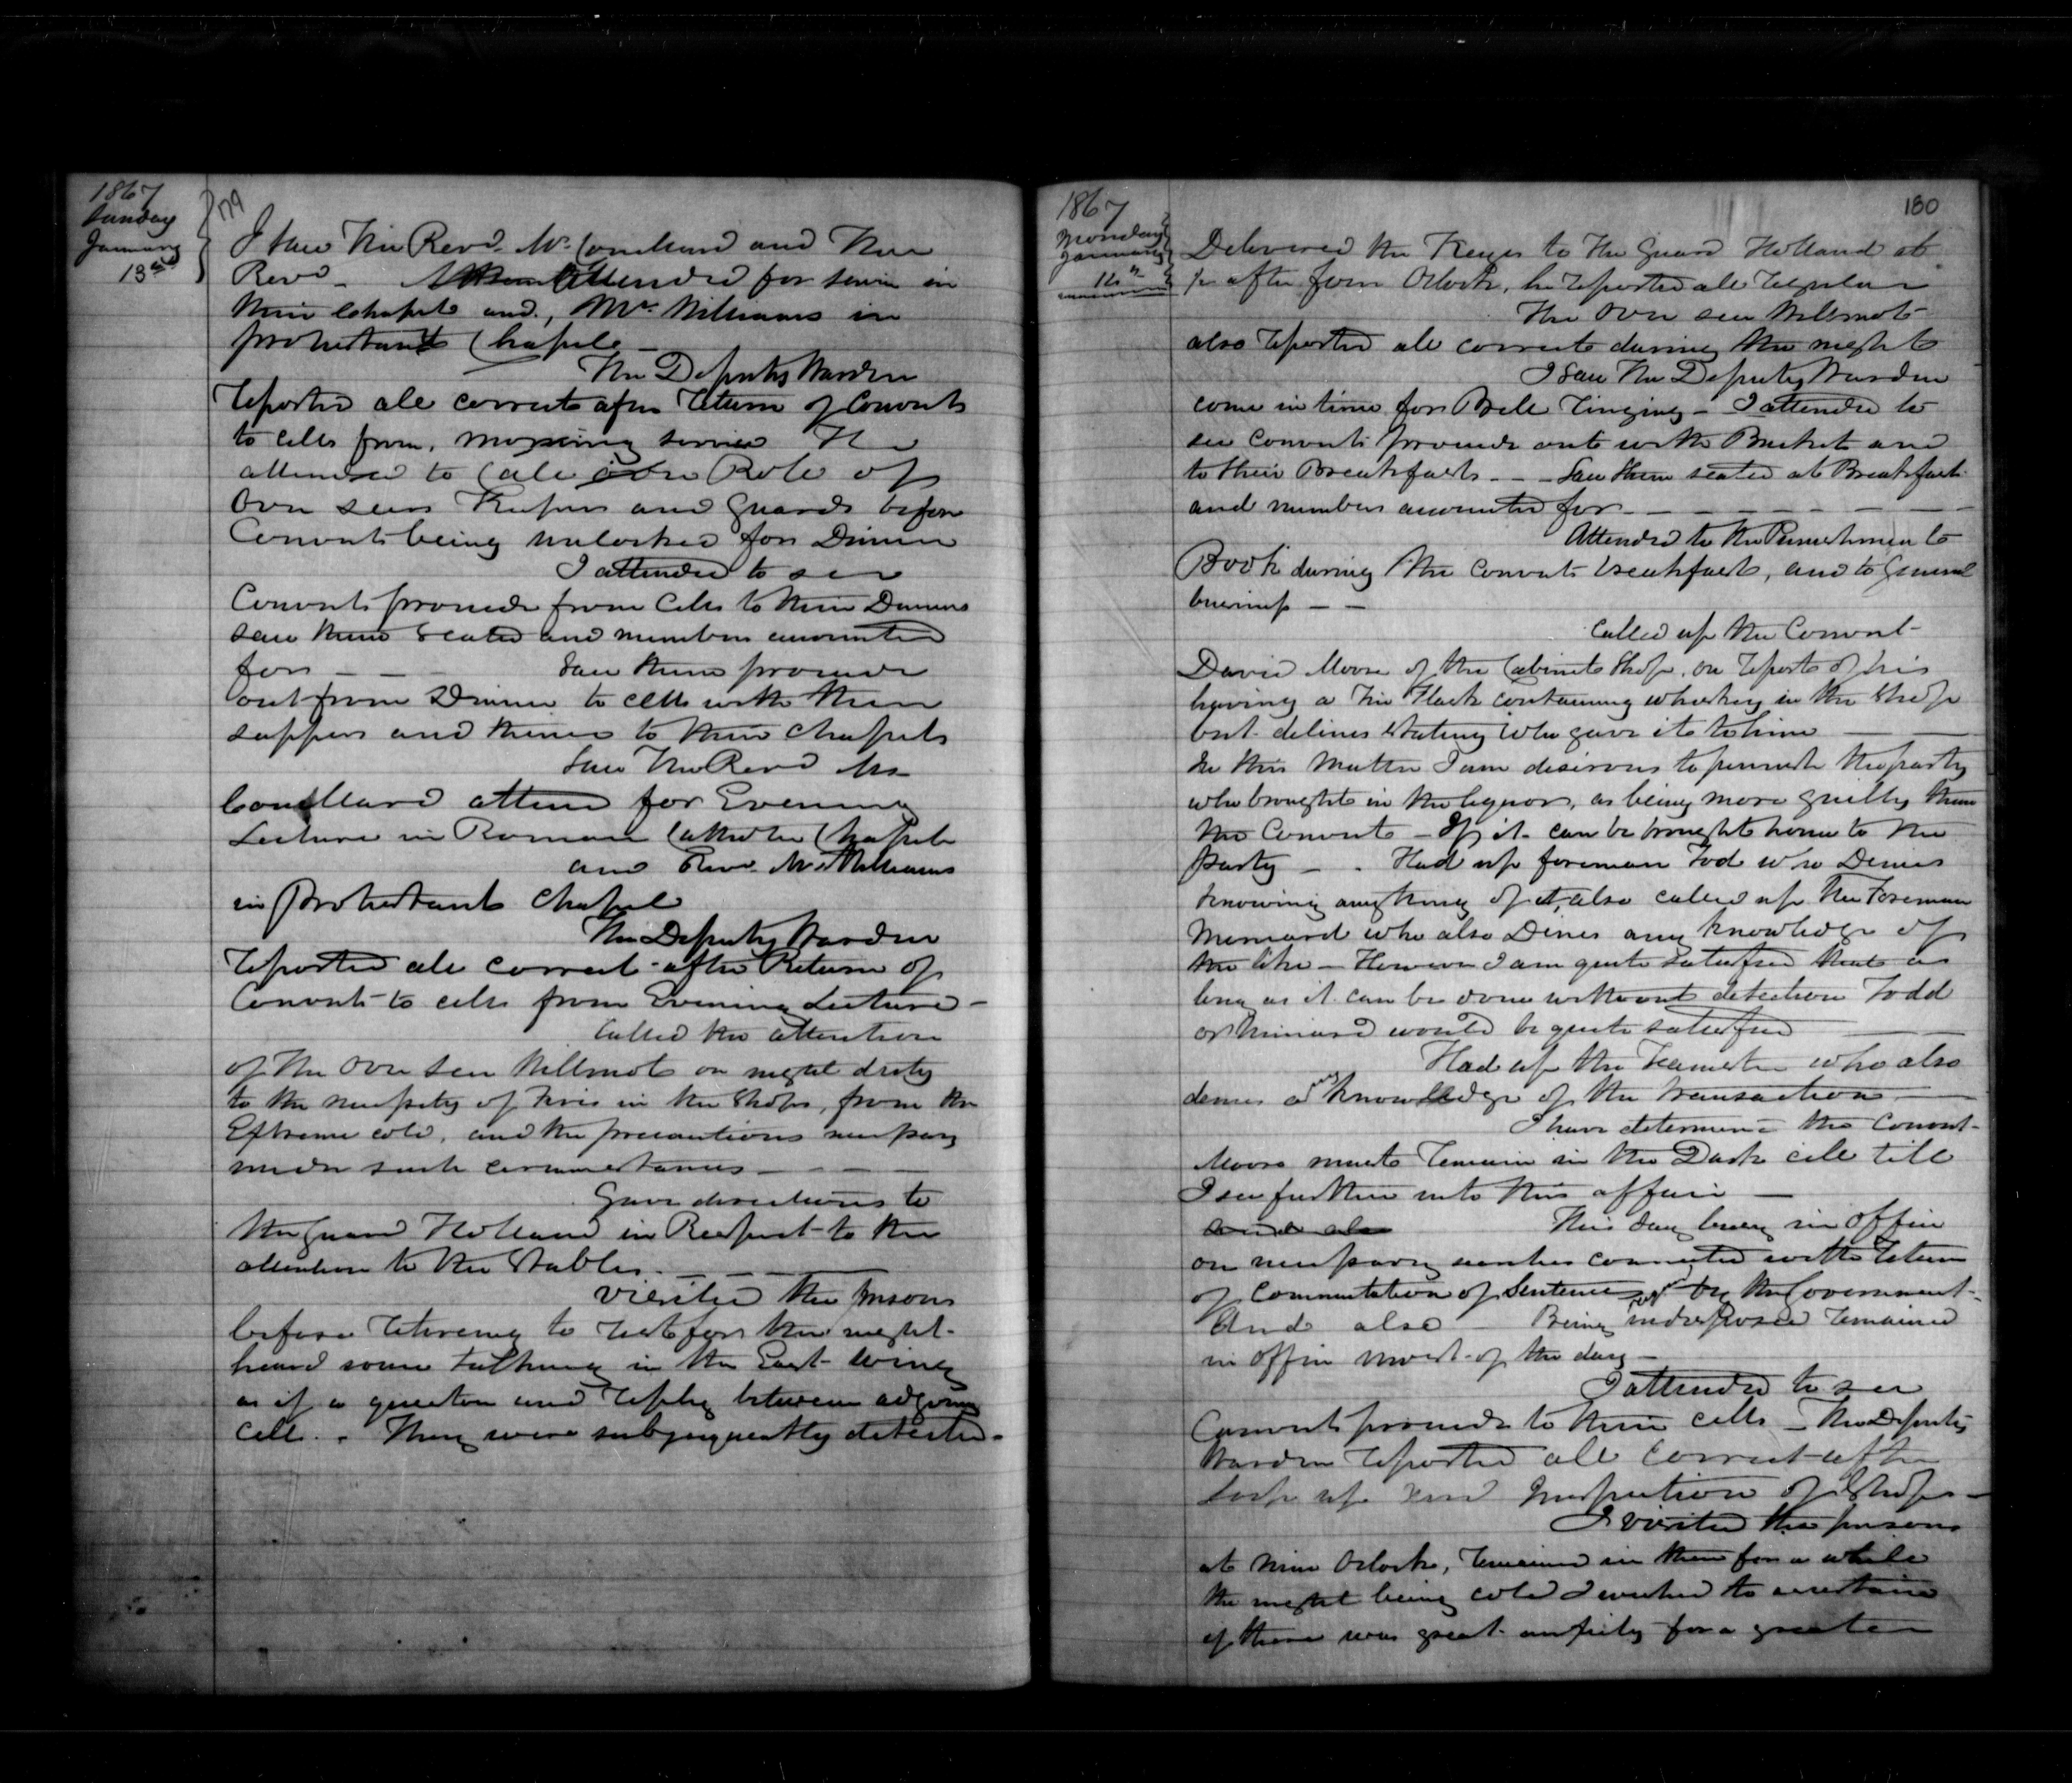 1867
Sunday
January
13th
179
I saw The Revd. Mr. and The
Revd - Attended for service in
their chapel and, Mr. Williams in
protestant Chapel -
The Deputy Warden
reported all correct after return of Convicts
to cells from, morning service
attended to Call over Role of
Over seers Keepers and Guards before
Convicts being unlocked for Dinner
I attended to see
Convicts proceede from Cells to their Dinners
saw them seated and numbers accounted
for - - Saw them proceede
out from Dinner to cells with their
suppers and thence to their chapels
Saw The Revd Mr
attend for Evening
Lecture in Roman Catholic Chapel
and Revd. Mr. Williams
in Protestant Chapel
The Deputy Warden
reported all correct after Return of
Convicts to cells from Evening Lecture -
Called the attention
of the Over seer Willmot on night duty
to the necessity of fires in the Shops, from the
Extreme cold, and the precautions necessary
under such circumstances - - -
Gave directions to
the Guard Holland in Respect to the
attention to the Stables. - - -
Visited the prisons
before retireing to rest for the night
heard some talking in the East wing
as if a question and reply between adjoining
Cell. . They were subsequently detected.
1867
Monday
January
14th
180
Delivered the Keyes to the Guard Holland at
1/2 after four Oclock, he reported all regular
The Over seer Willmot
also reported all correct during the night
I saw the Deputy Warden
come in time for Bell ringing - I attended to
see convicts proceede out with Buckets and
to their Breakfasts - - - Saw them seated at Breakfast
and numbers accounted for - - - - - - -
Attended to the Punishment
Book during the convicts breakfast, and to General
business - -
Called up the Convict
David Moore of the Cabinet Shop, on report of his
having a Tin Flask containing whiskey in the Shop
but declines stating who gave it to him
In this matter I am desirous to punish the party
who brought in the liquor, as being more guilty than
the Convict - If it can be brought home to the
party - . Had up foreman Tod who Denies
knowing anything of it, also called up the Foreman
who also Denies any knowledge of
the like - However I am quite satisfied that as
long as it can be done without detection Todd
or would be quite satisfied
Had up the Teamster who also
denies any knowledge of the transaction -
I have determined the Convict
Moore must remain in the Dark cell till
I see further into this affair -
and also This day busy in office
on necessary connected with return
of Commutation of Sentence for the Government -
And also - Being indisposed remained
in office most of the day -
I attended to see
Convicts proceede to their cells - The Deputy
Warden reported all correct after
lock up and Inspection of Shops -
I visited the prisons
at nine Oclock, remained in them for a while
the night being cold I wished to ascertain
if there was great for a greater